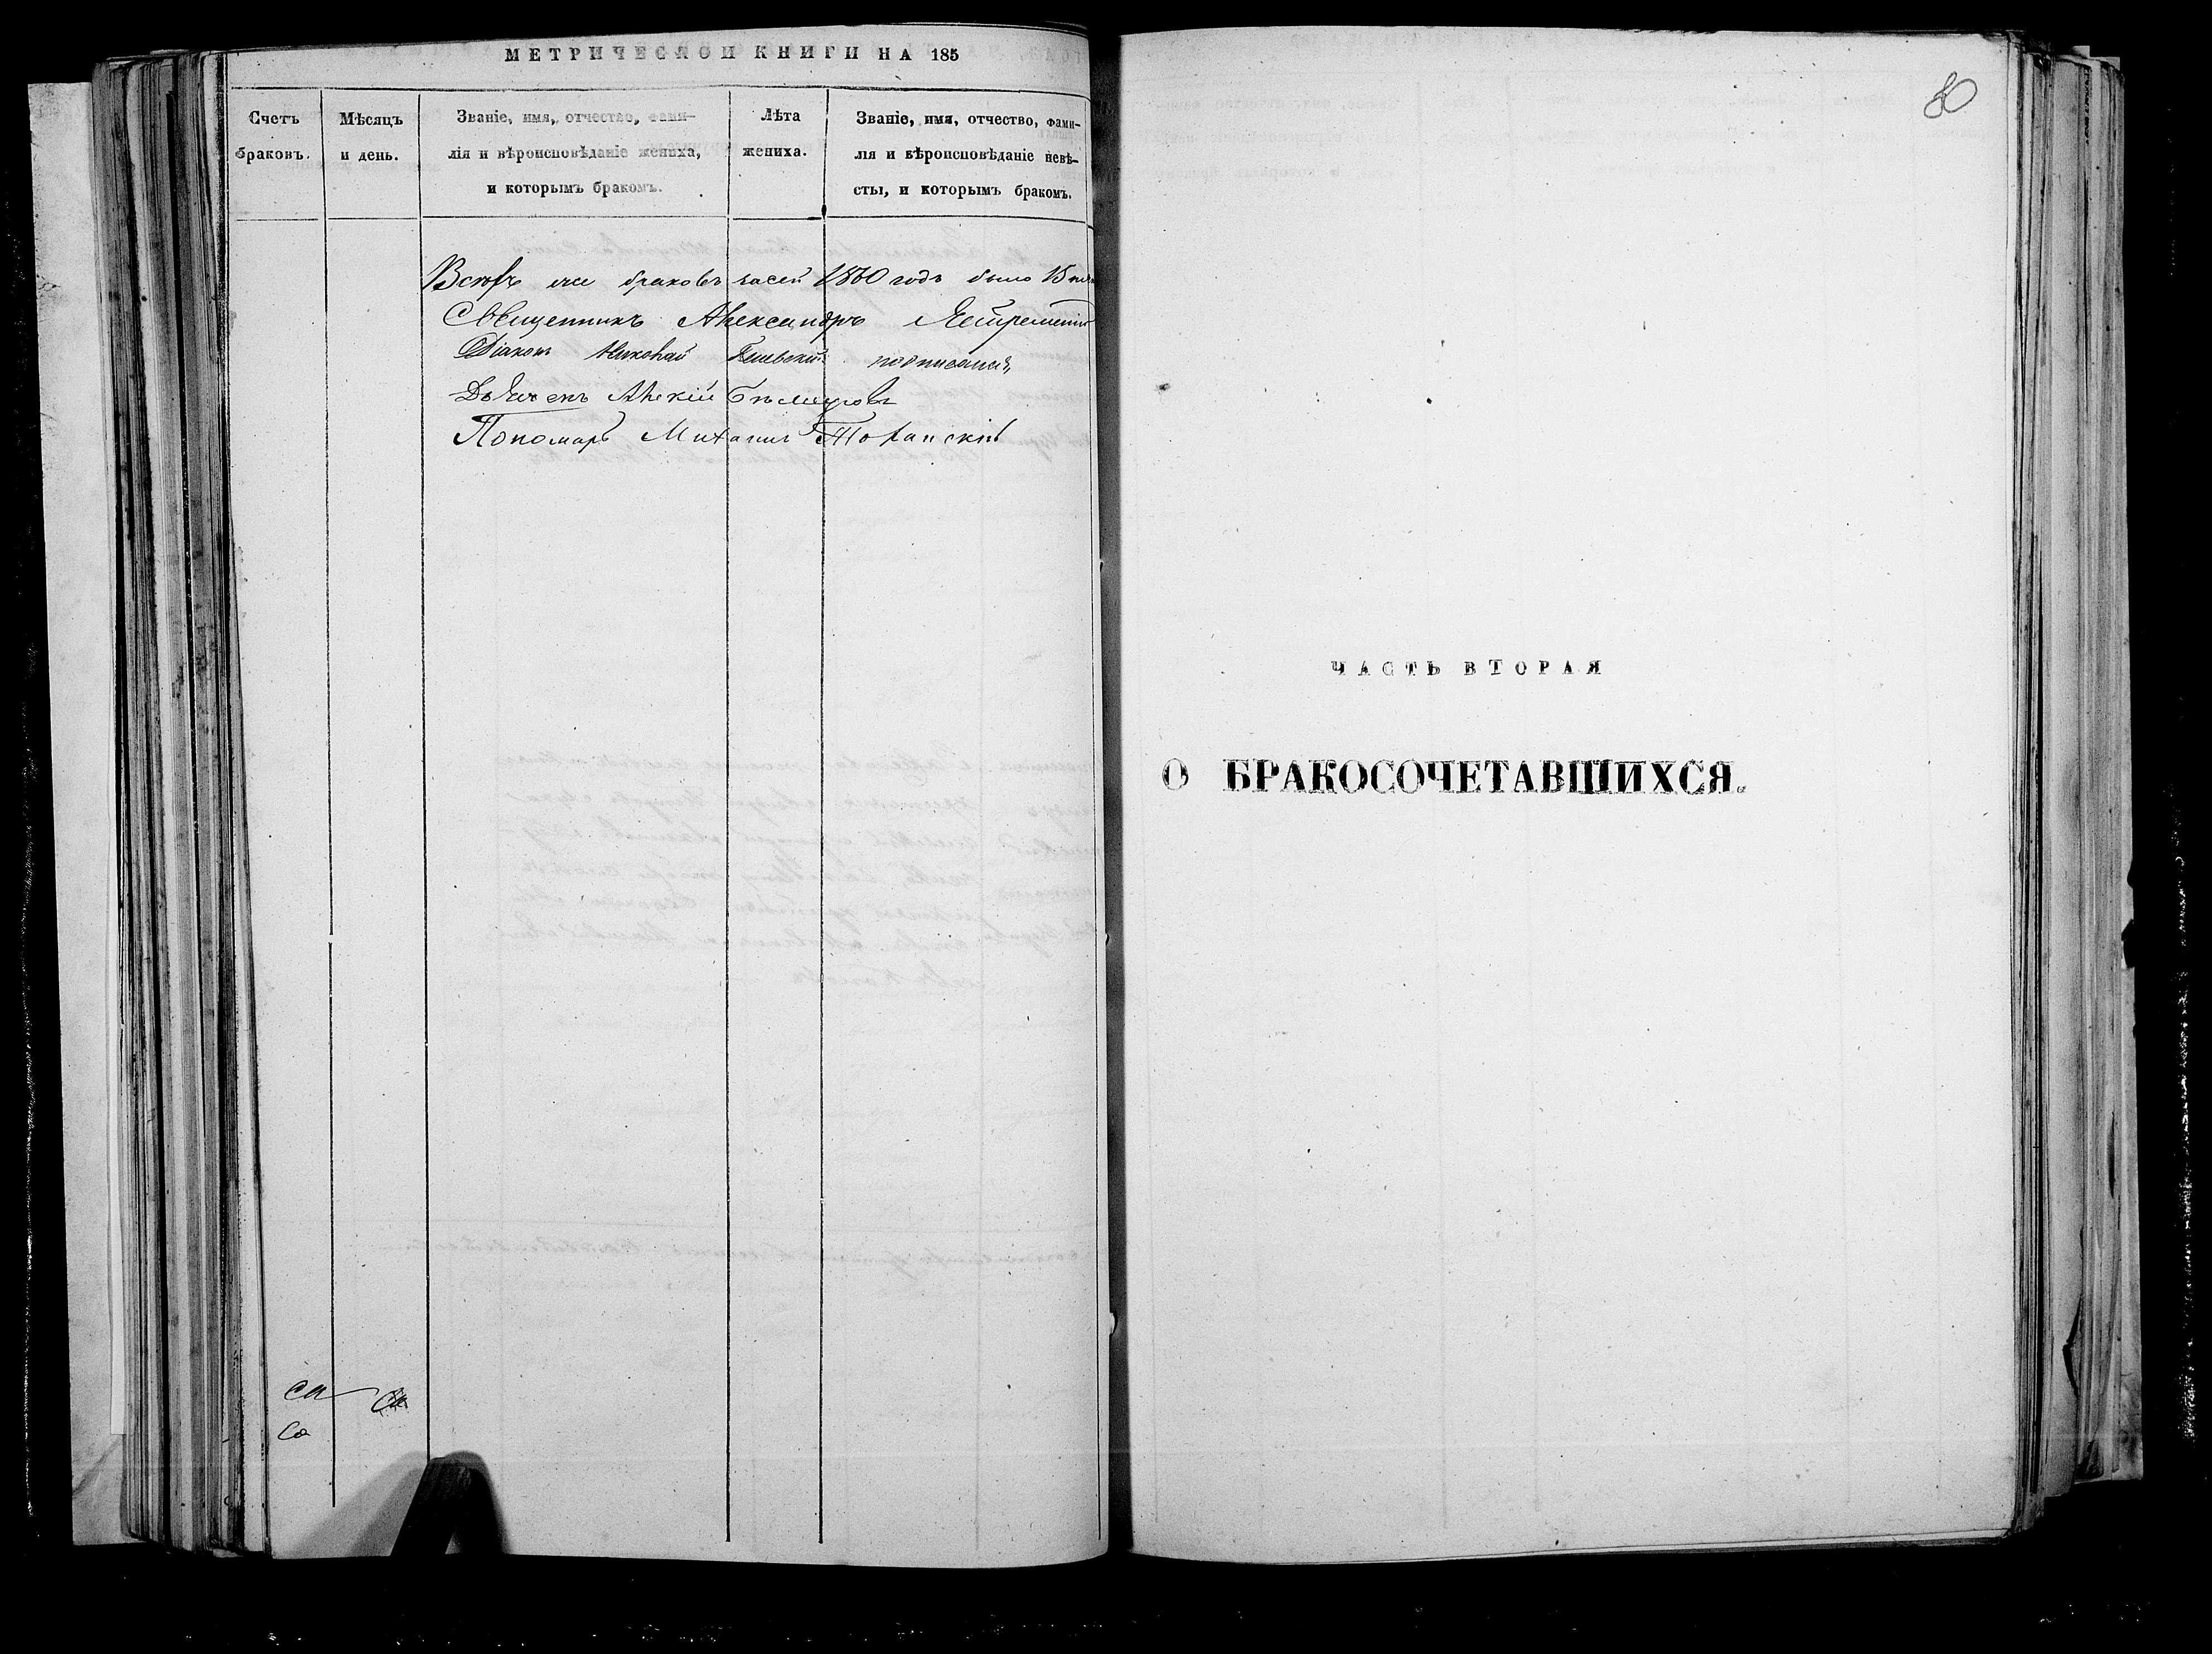 МЕТРИЧЕСКОЙ КНИГИ НА 185
Счетъ
браковъ.
Мѣсяцъ
и день.
Званіе, имя, отчество, фами-
лія и вѣроисповѣданіе жениха,
и которымъ бракомъ.
Лѣта
жениха.
Званіе, имя, отчество, фами-
лія и вѣроисповѣданіе невѣ-
сты, и которымъ бракомъ.
Всѣхъ же браковъ за сей 1860 годъ было 15
Священникъ Александръ
Діаконъ Николай
Алексій
Пономарь Михаилъ
са са
со
80
ЧАСТЬ ВТОРАЯ
О БРАКОСОЧЕТАВШИХСЯ.